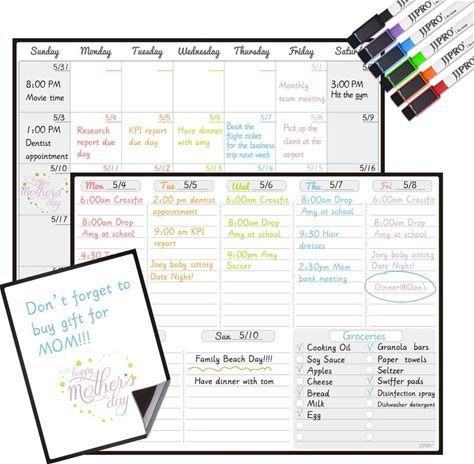 JJPRO
JJPRO
JJPRO
JJPRO
JJPRO
JJPRO
Sunday Monday Tuesday Wednesday Thursday Friday
5/31 5/1
8:00 PM
Movie time
Monthly
team meeting
3:00 PM
Hit the gym
5/3 5/4 5/5 5/6 5/7 5/8
1:00 PM
Dentist
appointment
Research
report due
day
KPI report
due day
Have dinner
with amy
Book the
flight ticket
for the
business trip
next week
Pick up the
client at the
airport
5/10 5/11 5/12 5/13 5/14 5/15
happy
Mother's
day
5/17
Mon 5/4 Tue 5/5 Wed 5/6 Thu 5/7 Fri 5/8
6:00am Crossfit
8:00am Drop
Amy at school
4:30
2:00 pm dentist
appointment
9:00 am KPI
report
Joey baby sitting
Date Night!
6:00am Crossfit
8:00am Drop
Amy at school
6:00pm Amy
Soccer
8:00am Drop
Amy at school
9:30 Hair
dresses
2:30pm Mom
bank meeting
6:00am Crossfit
8:00am Drop
Amy at school
Joey baby sitting
Date Night!
Dinner@Dan's
Don't forget to
buy gift for
MOM!!!
happy
Mother's
day
Sun 5/10
Family Beach Day!!!!
Have dinner with tom
Groceries
Cooking Oil Granola bars
Soy Sauce Paper towels
Apples Seltzer
Cheese Swiffer pads
Bread Disinfection spray
Milk Dishwasher detergent
Egg